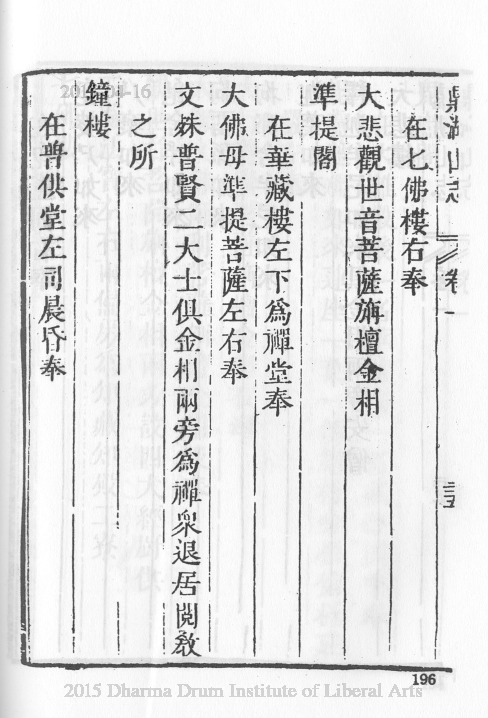 鼎湖山志 卷一
在七佛樓右奉
大悲觀世音菩薩旃檀金相
準提閣
在華藏樓左下為禪堂奉
大佛母準提菩薩左右奉
文殊普賢二大士俱金相兩旁為禪眾退居閱教
之所
鐘樓
在普供堂左司晨昏奉
196
2015 Dharma Drum Institute of Liberal Arts